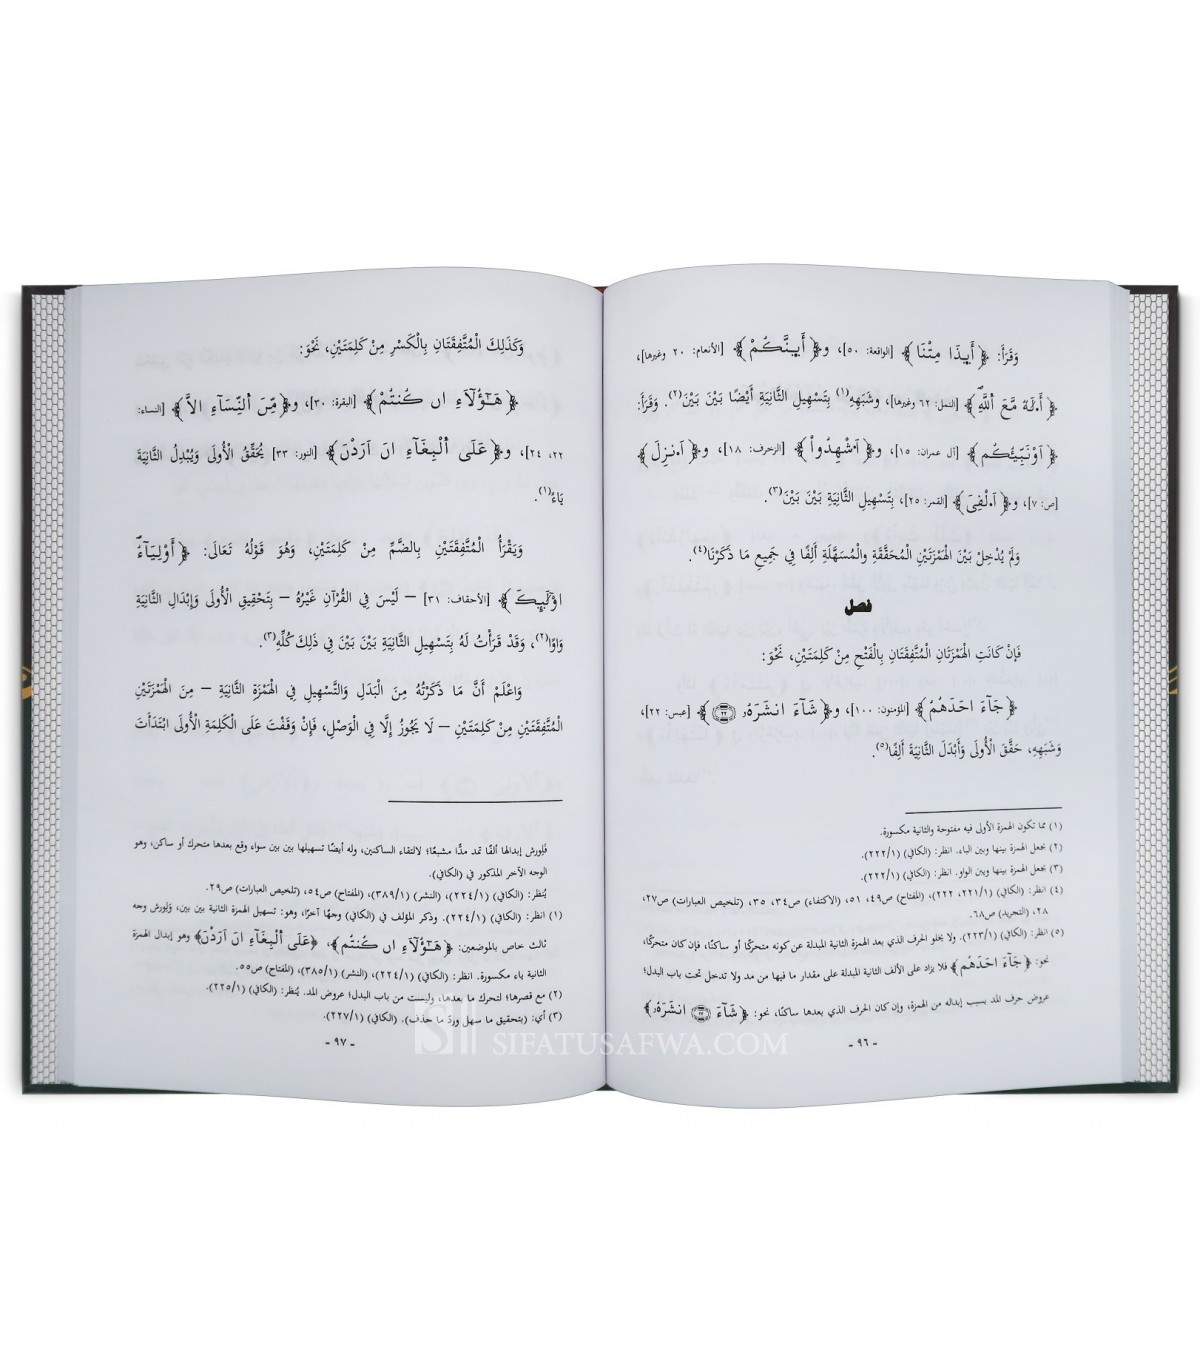 وَقَرَأَ: ﴿أَيِذَا مِتْنَا﴾ [الواقعة: ٥٠]، و﴿أَيِنَّكُمْ﴾ [الأنعام: ٢٠ وغيرها]،
﴿أَ.لَهٌ مَّعَ اَللَّهِ﴾ [النمل: ٦٢ وغيرها]، وشَبَهِهِ(١) بِتَسْهِيلِ الثَّانِيَةِ أَيْضًا بَيْنَ بَيْنَ(٢). وَقَرَأَ:
﴿اَوْنَبِّئُكُم﴾ [آل عمران: ١٥]، و﴿اَ.شْهِدُواْ﴾ [الزخرف: ١٨]، و﴿اَ.نزِلَ﴾
[ص: ٧]، و﴿اَ.لْقِيَ﴾ [القمر: ٢٥]، بِتَسْهِيلِ الثَّانِيَةِ بَيْنَ بَيْنَ(٣).
وَلَمْ يُدْخِلْ بَيْنَ الْهَمْزَتَيْنِ الْمُحَقَّقَةِ وَالْمُسَهَّلَةِ أَلِفًا فِي جَمِيعِ مَا ذَكَرْنَا(٤).
فصل
فَإِنْ كَانَتِ الْهَمْزَتَانِ الْمُتَّفِقَتَانِ بِالْفَتْحِ مِنْ كَلِمَتَيْنِ، نَحْوَ:
﴿جَآءَ احَدَهُمُ﴾ [المؤمنون: ١٠٠]، و﴿شَآءَ انشَرَهُۥ ٢٢﴾ [عبس: ٢٢]،
وَشَبَهِهِ، حَقَّقَ الْأُولَى وَأَبْدَلَ الثَّانِيَةَ أَلِفًا(٥).
(١) مما تكون الهمزة الأولى فيه مفتوحة والثانية مكسورة.
(٢) بجعل الهمزة بينها وبين الياء. انظر: (الكافي) (٢٢٢/١).
(٣) بجعل الهمزة بينها وبين الواو. انظر: (الكافي) (٢٢٢/١).
(٤) انظر: (الكافي) (٢٢١/١، ٢٢٢)، (المفتاح) ص٤٩، ٥١، (الاكتفاء) ص٣٤، ٣٥، (تلخيص العبارات) ص٢٧،
٢٨، (التجريد) ص٦٨.
(٥) انظر: (الكافي) (٢٢٣/١). ولا يخلو الحرف الذي بعد الهمزة الثانية المبدلة عن كونه متحركًا أو ساكنًا، فإن كان متحركًا،
نحو: ﴿جَآءَ احَدَهُم﴾ فلا يزاد على الألف الثانية المبدلة على مقدار ما فيها من مد ولا تدخل تحت باب البدل؛
عروض حرف المد بسبب إبداله من الهمزة، وإن كان الحرف الذي بعدها ساكنًا، نحو: ﴿شَآءَ ٢٢ انشَرَهُۥ﴾
- ٩٦ -
وَكَذَلِكَ الْمُتَّفِقَتَانِ بِالْكَسْرِ مِنْ كَلِمَتَيْنِ، نَحْوُ:
﴿هَـٰٓؤُلَآءِ ان كُنتُمْ﴾ [البقرة: ٣٠]، و﴿مِّنَ اَلنِّسَآءِ الاَّ﴾ [النساء:
٢٢، ٢٤]، و﴿عَلَى اَلْبِغَآءِ انَ اَرَدْنَ﴾ [النور: ٣٣] يُحَقِّقُ الْأُولَى وَيُبْدِلُ الثَّانِيَةَ
يَاءً(١).
وَيَقْرَأُ الْمُتَّفِقَتَيْنِ بِالضَّمِّ مِنْ كَلِمَتَيْنِ، وَهُوَ قَوْلُهُ تَعَالَى: ﴿أَوْلِيَآءُ
اوْلَٰٓئِكَ﴾ [الأحقاف: ٣١] – لَيْسَ فِي الْقُرْآنِ غَيْرُهُ – بِتَحْقِيقِ الْأُولَى وَإِبْدَالِ الثَّانِيَةِ
وَاوًا(٢)، وَقَدْ قَرَأْتُ لَهُ بِتَسْهِيلِ الثَّانِيَةِ بَيْنَ بَيْنَ فِي ذَلِكَ كُلِّهِ(٣).
وَاعْلَمْ أَنَّ مَا ذَكَرْتُهُ مِنَ الْبَدَلِ وَالتَّسْهِيلِ فِي الْهَمْزَةِ الثَّانِيَةِ – مِنَ الْهَمْزَتَيْنِ
الْمُتَّفِقَتَيْنِ مِنْ كَلِمَتَيْنِ – لَا يَجُوزُ إِلَّا فِي الْوَصْلِ، فَإِنْ وَقَفْتَ عَلَى الْكَلِمَةِ الْأُولَى ابْتَدَأْتَ
فلِورش إبدالها ألفًا تمد مدًّا مشبعًا؛ لالتقاء الساكنين، وله أيضًا تسهيلها بين بين سواء وقع بعدها متحرك أو ساكن، وهو
الوجه الآخر المذكور في (الكافي).
يُنظر: (الكافي) (٢٢٤/١)، (النشر) (٣٨٩/١)، (المفتاح) ص٥٤، (تلخيص العبارات) ص٢٩.
(١) انظر: (الكافي) (٢٢٤/١). وذكر المؤلف في (الكافي) وجهًا آخرًا، وهو: تسهيل الهمزة الثانية بين بين، وَلِورش وجه
ثالث خاص بالموضعين: ﴿هَـٰٓؤُلَآءِ ان كُنتُم﴾، ﴿عَلَى اَلْبِغَآءِ انَ اَرَدْنَ﴾ وهو إبدال الهمزة
الثانية ياء مكسورة. انظر: (الكافي) (٢٢٤/١)، (النشر) (٣٨٥/١)، (المفتاح) ص٥٥.
(٢) مع قصرها؛ لتحرك ما بعدها، وليست من باب البدل؛ عروض المد. يُنظر: (الكافي) (٢٢٥/١).
(٣) أي: (بتحقيق ما سهل وردّ ما حذف). (الكافي) (٢٢٧/١).
- ٩٧ -
SIFATUSAFWA.COM